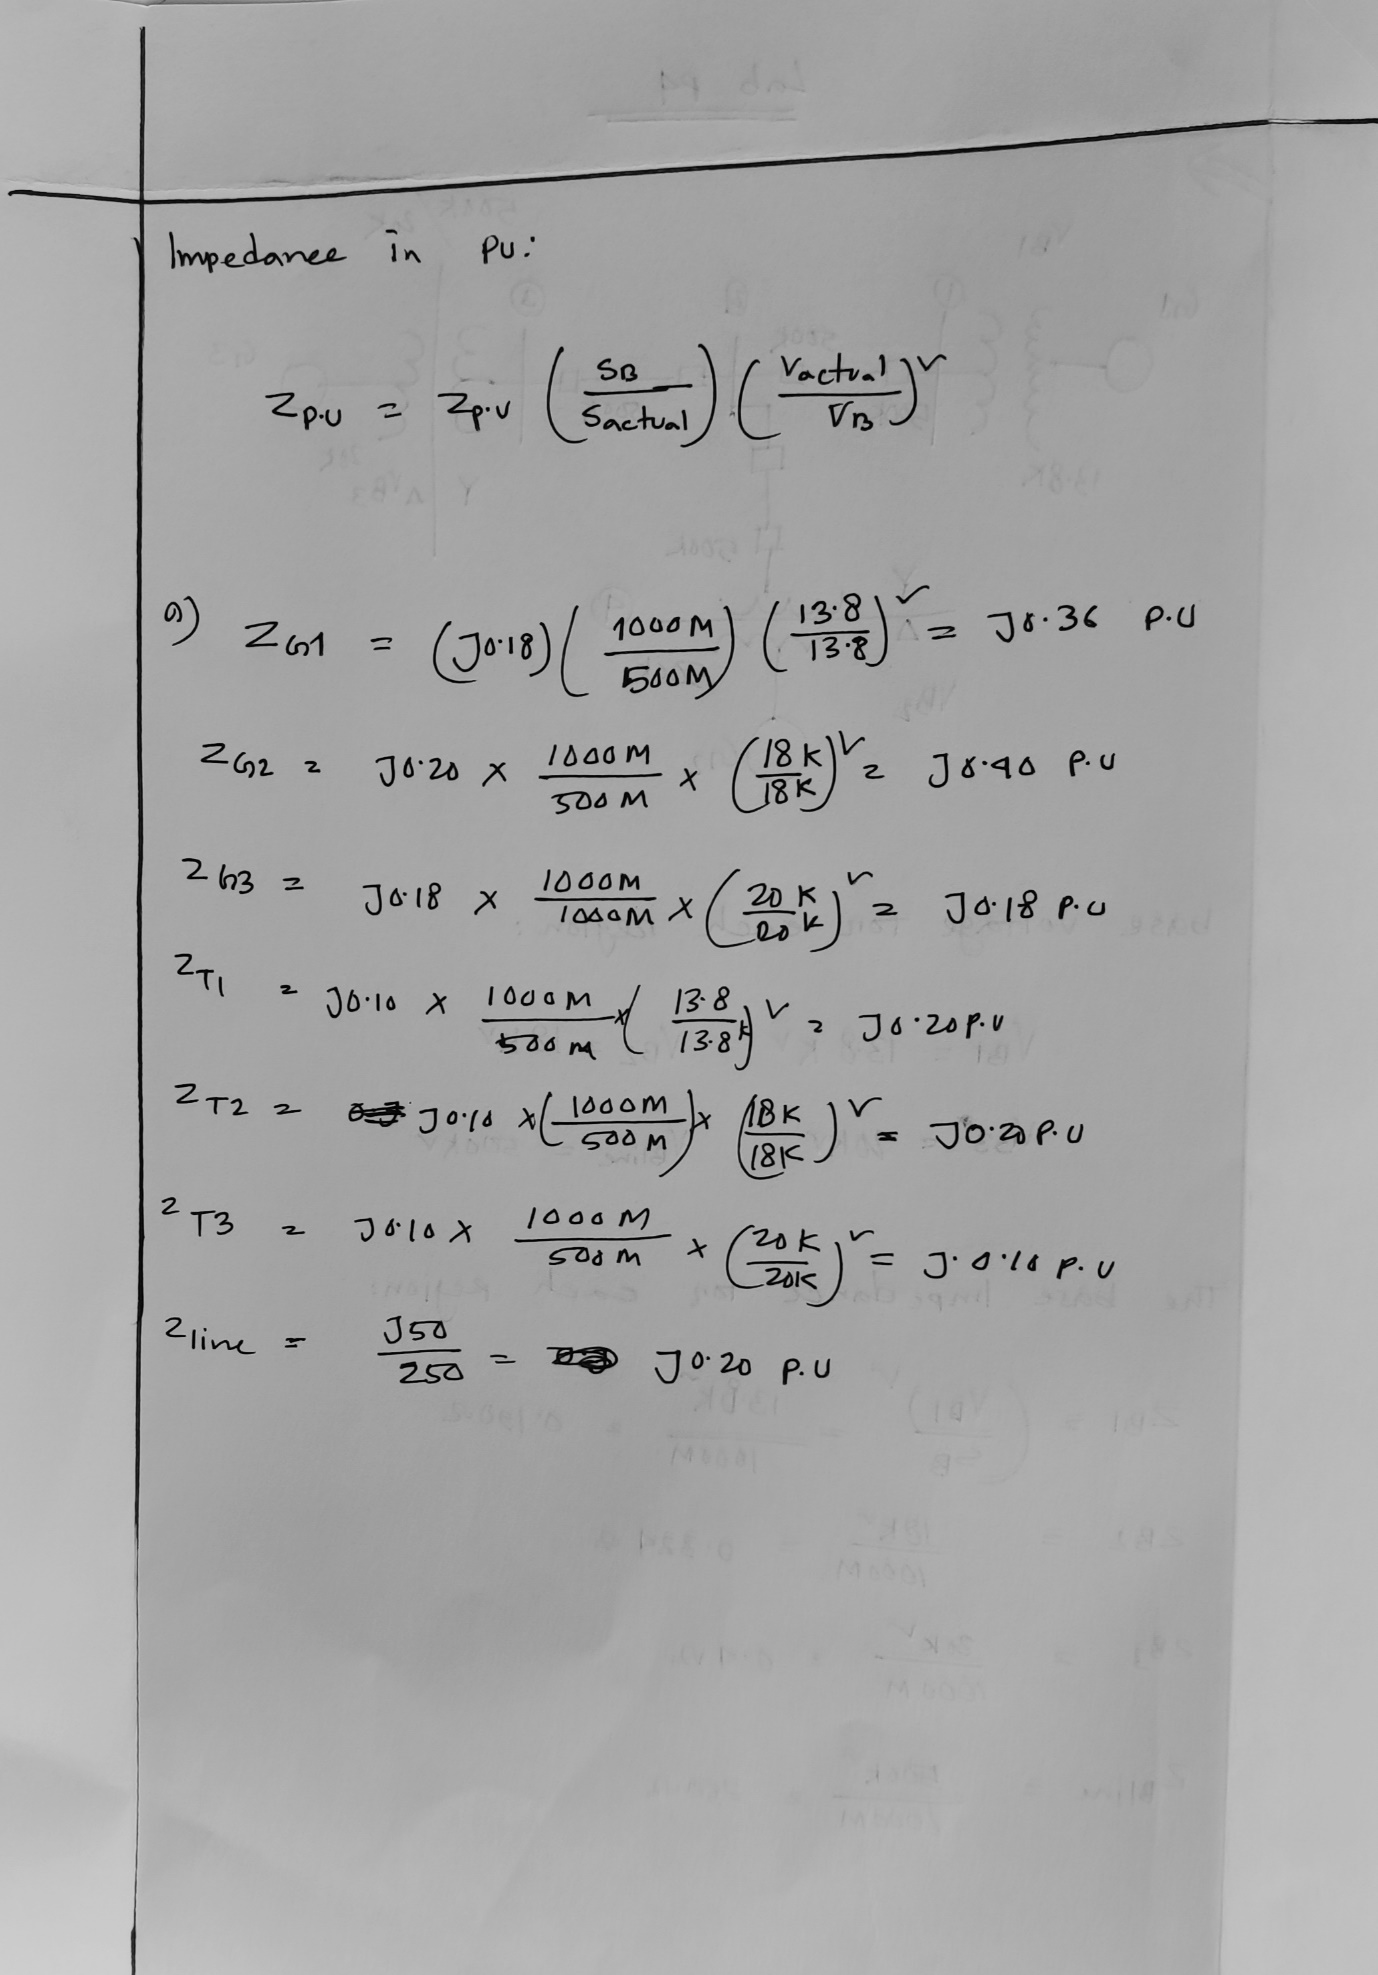 Impedance in PU:
Z P.U = Z p.u (SB / Sactual) (Vactual / VB)²
a) ZG1 = (J0.18) (1000M / 500M) (13.8 / 13.8)² = J0.36 P.U
ZG2 = J0.20 × 1000M / 500M × (18K / 18K)² = J0.40 P.U
ZG3 = J0.18 × 1000M / 1000M × (20K / 20K)² = J0.18 P.U
ZT1 = J0.10 × 1000M / 500M × (13.8 / 13.8K)² = J0.20 P.U
ZT2 = J0.10 × (1000M / 500M) × (18K / 18K)² = J0.20 P.U
ZT3 = J0.10 × 1000M / 500M × (20K / 20K)² = J.0.10 P.U
Zline = J50 / 250 = J0.20 P.U